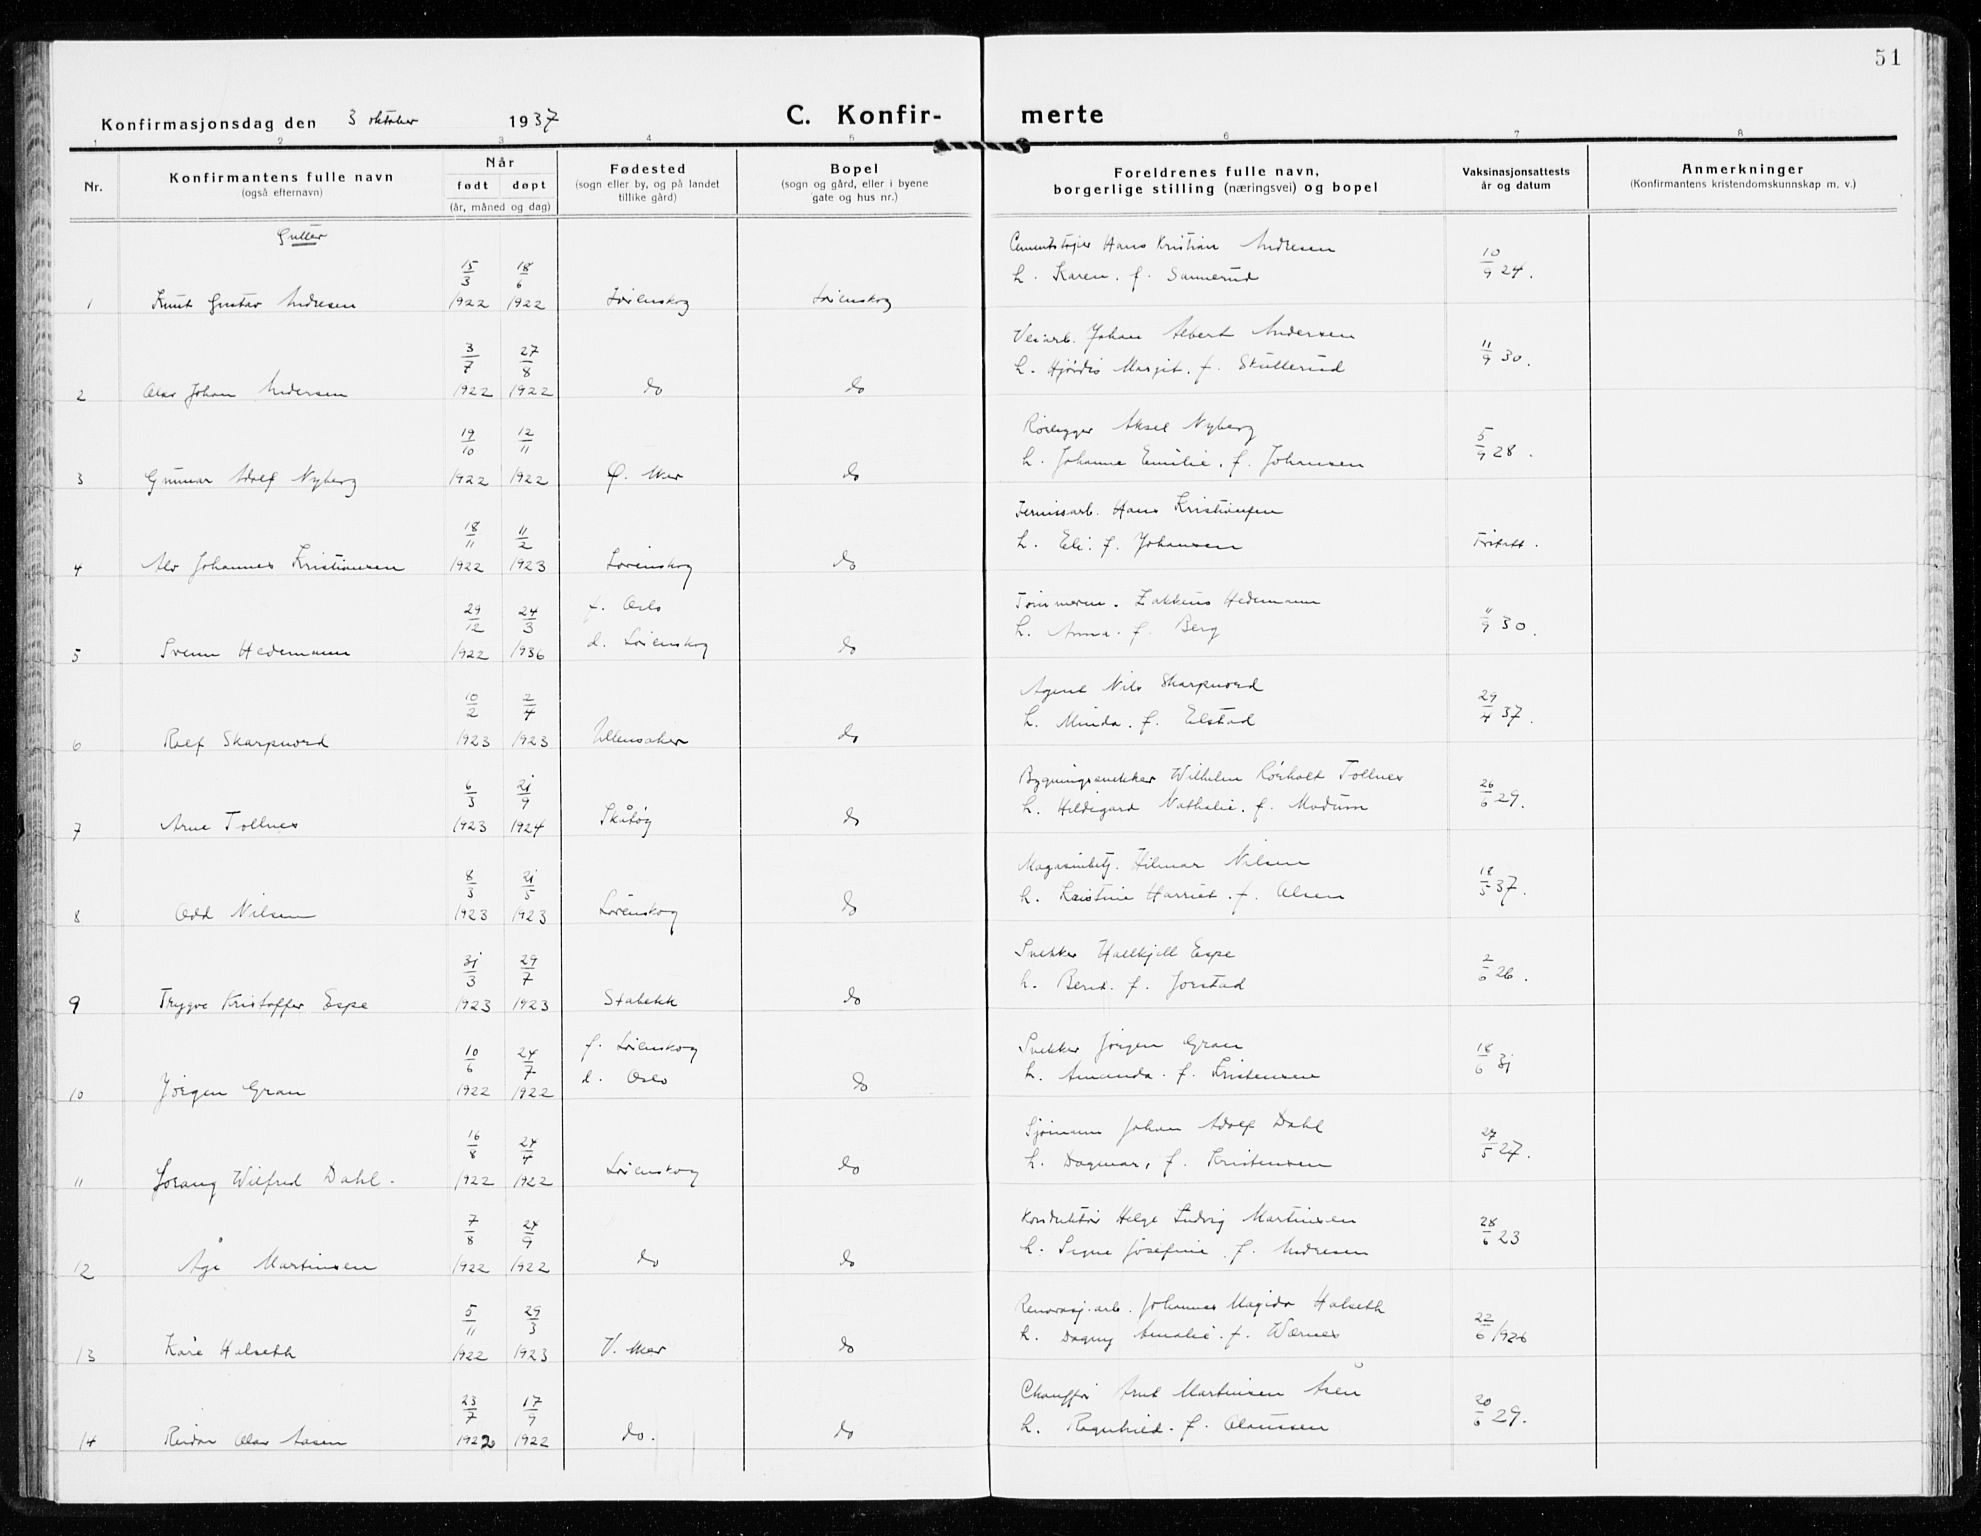 51
Konfirmasjonsdag den 3 oktober 1937
C. Konfir- merte
1 2 3 4 5 6 7 8
Nr. Konfirmantens fulle navn (også efternavn) Når født døpt (år, måned og dag) Fødested (sogn eller by, og på landet tillike gård) Bopel (sogn og gård, eller i byene gate og hus nr.) Foreldrenes fulle navn, borgerlige stilling (næringsvei) og bopel Vaksinasjonsattests år og datum Anmerkninger (Konfirmantens kristendomskunnskap m. v.)
Gutter
Hans Kristian Andresen
h. Karen. f. Sannerud
1 Knut Gustav Andresen 15/3 1922 18/6 1922 Lørenskog Lørenskog 10/9 24.
Veiarb. Johan Albert Andersen
h. Hjørdis Margit. f. Skullerud
2 Olav Johan Andersen 3/7 1922 27/8 1922 do do 11/9 30.
Rørlegger Aksel Nyberg
h. Johanne Emilie. f. Johansen
3 Gunnar Adolf Nyberg 19/10 1922 12/11 1922 Ø. Aker do 5/9 28.
Fernissarb. Hans Kristiansen
h. Eli. f. Johansen
4 Alv Johannes Kristiansen 18/11 1922 11/2 1923 Lørenskog do Fritatt.
Tømmerm. Zakkeus Hedemann
h. Anna. f. Berg
5 Svenn Hedemann 29/12 1922 24/3 1936 f. Oslo d. Lørenskog do 11/9 30.
Agent Nils Skarpnord
h. Minda. f. Elstad
6 Rolf Skarpnord 10/2 1923 2/4 1923 Ullensaker do 29/4 37.
Bygningssnekker Wilhelm Rørholt Tollnes
h. Hildegard Nathalie. f. Modum
7 Arne Tollnes 6/3 1923 21/9 1924 Skåtøy do 26/6 29.
Magasinbetj. Hilmar Nilsen
h. Kristine Harriet. f. Olsen
8 Odd Nilsen 8/3 1923 21/5 1923 Lørenskog do 18/5 37.
Snekker Hallkjell Espe
h. Berit. f. Jorstad
9 Trygve Kristoffer Espe 31/3 1923 29/7 1923 Stabekk do 2/6 26.
Snekker Jørgen Gran
h. Amanda. f. Kristensen
10 Jørgen Gran 10/6 1922 24/7 1922 f. Lørenskog d. Oslo do 18/6 31
Sjømann Johan Adolf Dahl
h. Dagmar, f. Kristensen
11 Wilfred Dahl. 16/8 1922 24/4 1922 Lørenskog do 27/5 27.
Konduktør Helge Ludvig Martinsen
h. Signe Josefine. f. Andresen
12 Åge Martinsen 7/8 1922 24/9 1922 do do 28/6 23
Renovasj.arb. Johannes Magido Halseth
h. Dagny Amalie. f. Wærnes
13 Kåre Halseth 5/11 1922 29/3 1923 V. Aker do 22/6 1926
Chauffør Arnt Martinsen Åsen
h. Ragnhild. f. Olaussen
14 Reidar Olav Aasen 23/7 1922 17/9 1922 do. do 20/6 29.